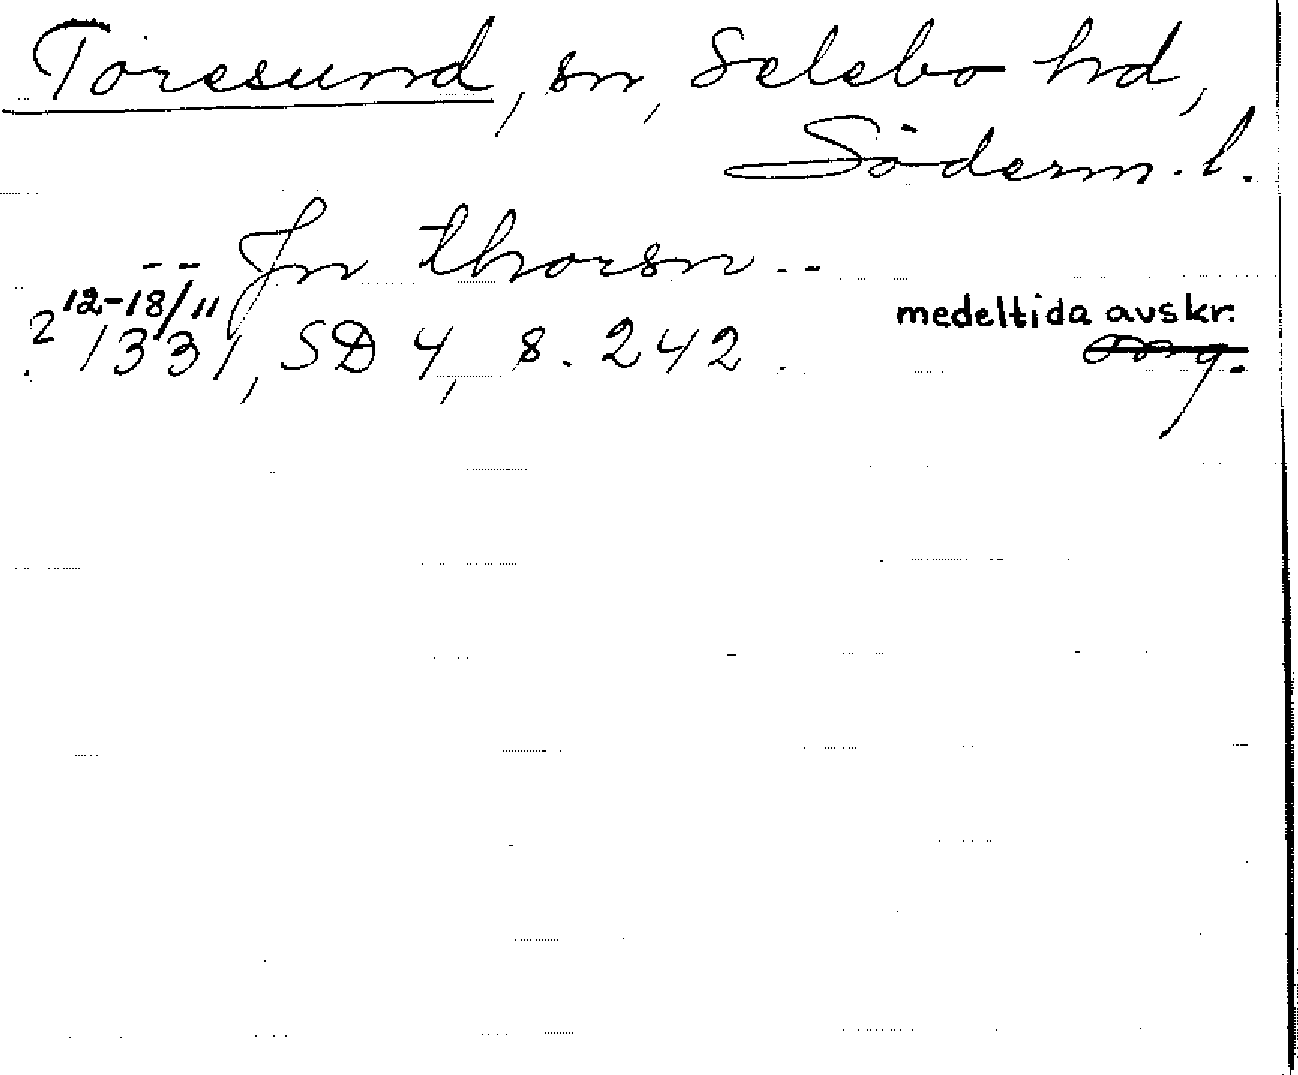 Toresund, sn, Selebo hd,
Söderm. l.
-- Jn thorsn --
? 12-18/11 1331, SD 4, s. 242. medeltida avskr.